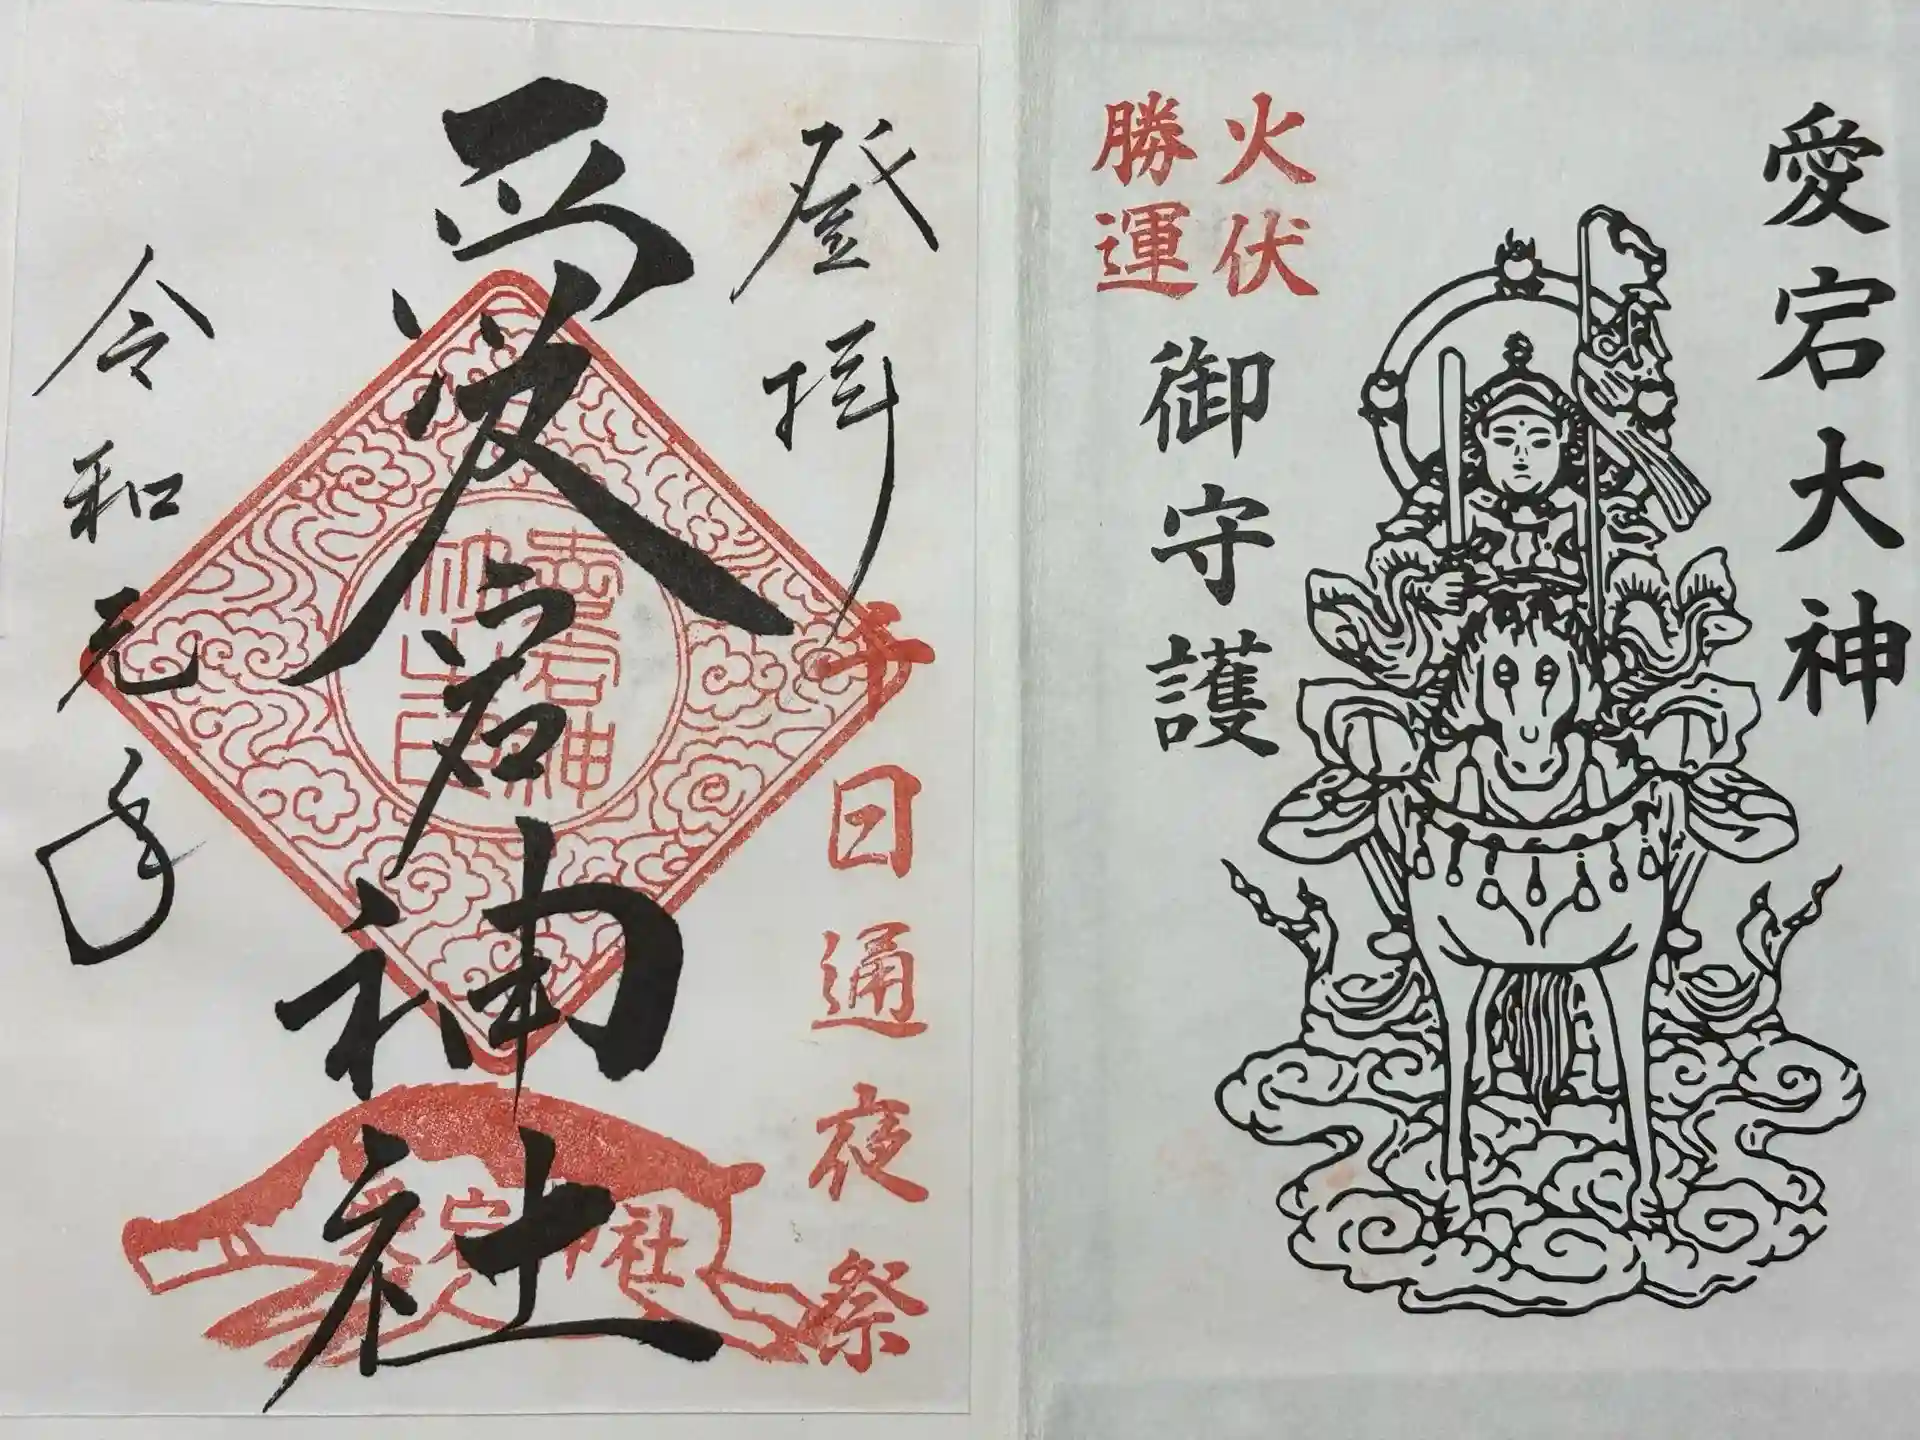 愛宕大神
火伏
勝運
御守護
登拝
千日通夜祭
愛宕神社
愛宕神
社之印
愛宕神社
令和元年